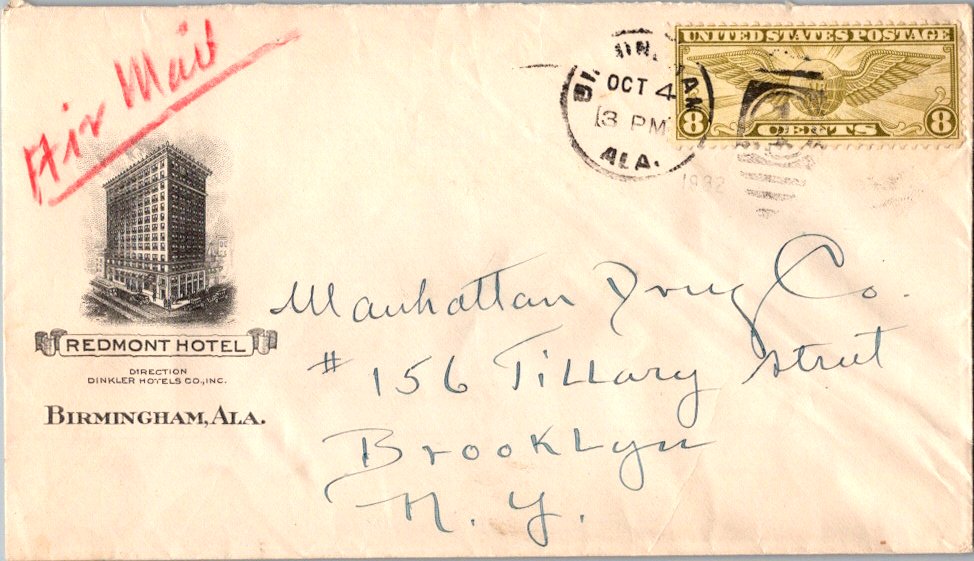 Air Mail
UNITED STATES POSTAGE
8 CENTS 8
OCT 4
3 PM
ALA.
1932
REDMONT HOTEL
DIRECTION
DINKLER HOTELS CO., INC.
BIRMINGHAM, ALA.
Manhattan Drug Co.
# 156 Tillary Street
Brooklyn
N. Y.